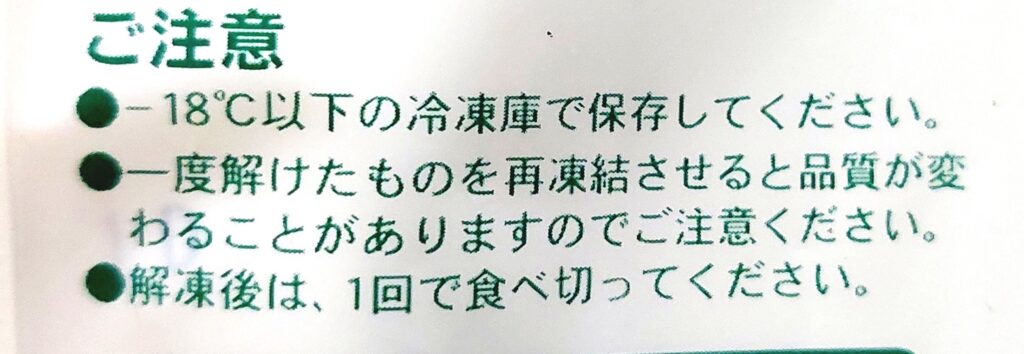 ご注意
●－18℃以下の冷凍庫で保存してください。
●一度解けたものを再凍結させると品質が変
わることがありますのでご注意ください。
●解凍後は、1回で食べ切ってください。